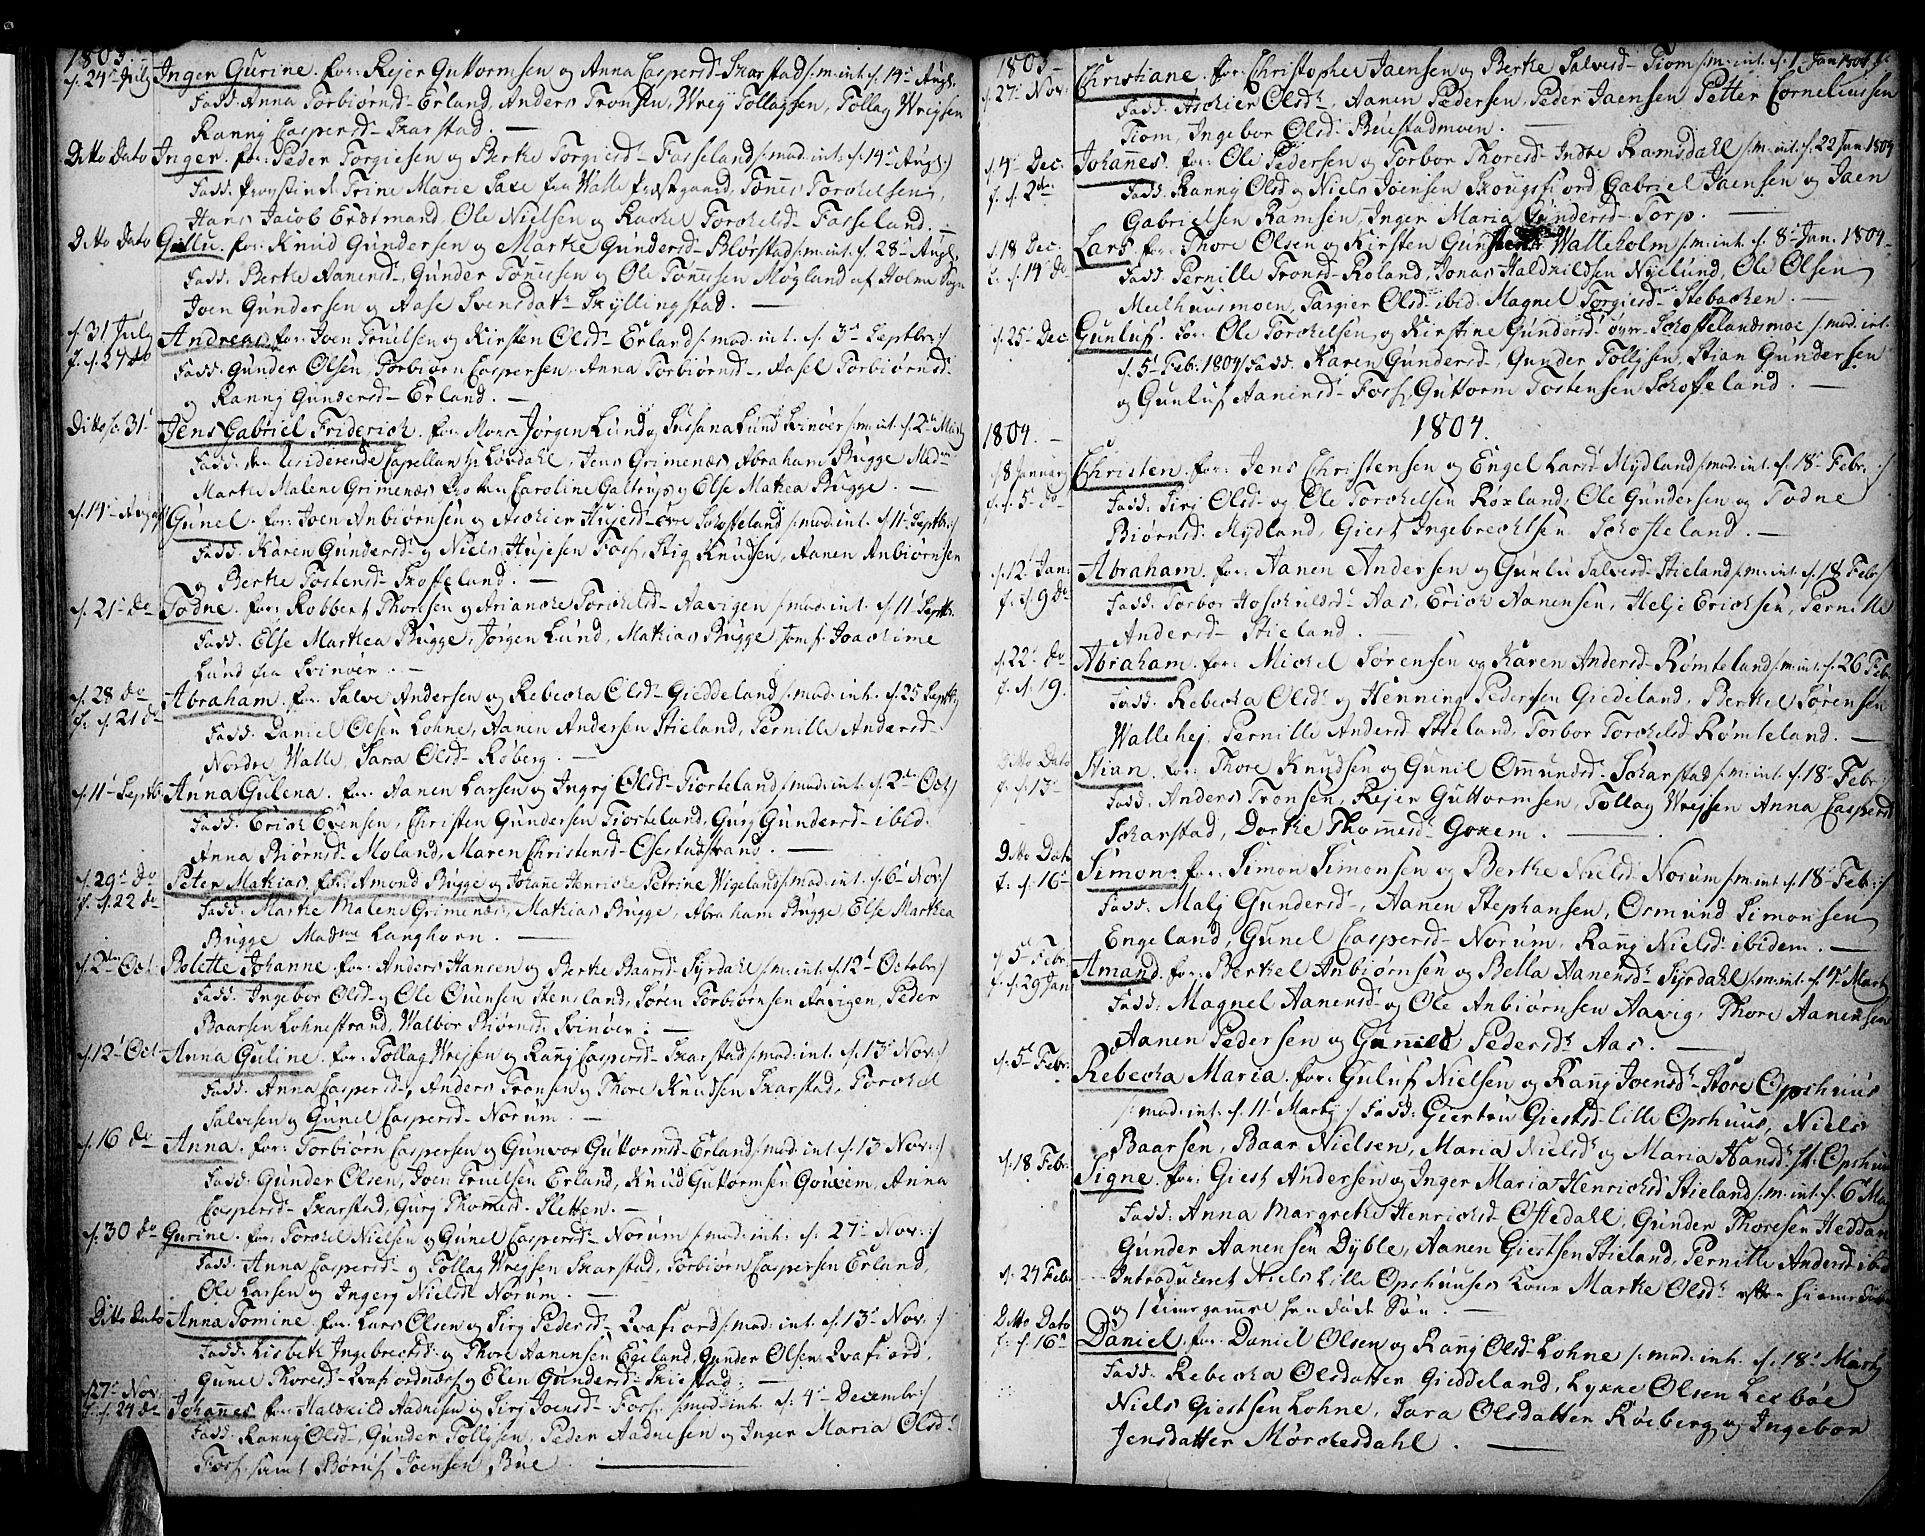 1803.
d. 24de July Inger Gurine. for: Rejer Guttormsen og Anna Caspersd. Skarstad /: m: int. d. 14de Aug.
Fadd: Anna Torbiørnsd. Erland, Anders Tronsen, Wrey Tollagsen, Tollag Wreysen
Ranny Caspersd. Skarstad. —
Ditto Dato Inger. for: Peder Torgiesen og Berthe Torgiersd. Fasseland /: mod: int: d. 14de Aug. :/
Fadd: Provstinde Trine Marie Saxe fra Walle Præstegaard, Tønnes Torchelsen,
Hans Jacob Erdtmand, Ole Nielsen og Rachel Torchelsd. Fasseland. —
Ditto Dato Gullu. for: Knud Gundersen og Marthe Gundersd. Blørstad /: m: int. d. 28de Aug.
Fadd: Berthe Aanensd., Gunder Tønnesen og Ole Tønnesen Møgland af Holme Sogn
Joen Gundersen og Aase Svensdatr. Skyllingstad. —
d. 31 July Andreas for: Joen Truelsen og Kirsten Olsd. Erland /: mod: int. d. 3de Septbr. :/
f. d. 27 do Fadd: Gunder Olsen, Torbiørn Caspersen, Anna Torbiørnsd., Aasel Torbiørnsd.
og Ranny Gundersd. Erland. —
Ditto d. 31 Jens Gabriel Friderich. for: Mons: Jørgen Lund og Susana Lund Svinøer /: m: int. d. 2den
Fadd: den Capellan Hr. Løvdahl, Jens Grimenæs Abraham Bugge Mdm
Marthe Malene Grimenæs Caroline Galtrup og Else Mathea Bugge. —
d. 14de August Gunel. for: Joen Anbiørnsen og Aschier Hujesd. Øvre Schoffeland /: mod: int. d. 11de Septbr. :/
Fadd: Karen Gundersd. og Niels Hujesen Foss, Stig Knudsen, Aanen Anbiørnsen
og Berthe Tostensd. Skoffeland. —
d. 21de do Todne. for: Robbert Thorsen og Arianche Torchelsd. Aavigen /: mod: int. d. 11de Septbr.
Fadd: Else Marthea Bugge, Jørgen Lund, Mathias Bugge Jomfr. Joachime
Lund fra Svinøer. —
d. 28 do Abraham. for: Salve Andersen og Rebecka Olsd. Gieddeland /: mod: int. d. 25 Septbr.
f. d. 21 do Fadd: Daniel Olsen Lohne, Aanen Andersen Stieland, Pernille Andersd.
Nordre Walle, Sara Olsd. Røberg. —
d. 11te Septbr. Anna Gulena. for: Aanen Larsen og Ingrj Olsd. Tiorteland /: mod: int. d. 2den Oct. :/
Fadd: Erich Evensen, Christen Gundersen Tiorteland, Gurj Gundersd. ibid.
Anna Biørnsd. Moland, Maren Christensd. Østestadstrand. —
d. 29de do Peter Mathias. for: Amond Bugge og Johane Henriche Petrine Wigeland /: mod: int. d. 6te Nov: :/
f. d. 22 do Fadd: Marthe Malene Grimenæs, Mathias Bugge, Abraham Bugge Else Marthea
Bugge Madme Langhorn. —
d. 2den Oct. Bolette Johanne. for: Anders Hansen og Berthe Baarsd. Syrdahl /: m: int. d. 12te October :/
Fadd: Ingebor Olsd. og Ole Evensen Stensland, Søren Torbiørnsen Aavigen, Peder
Baarsen Lohnestrand, Walbor Biørnsd. Svinøer: —
d. 12te Oct. Anna Guline. for: Tollag Wrejsen og Ranj Caspersd. Skarstad /: mod: int. d. 13de Nov: :/
Fadd: Anna Caspersd., Anders Tronsen og Thore Knudsen Skarstad, Torchel
Salvesen og Gunel Caspersd. Norum —
d. 16 do Anna. for: Torbiørn Caspersen og Gunvor Guttormsd. Erland /: mod: int d. 13 Nov: :/
Fadd: Gunder Olsen, Joen Truelsen Erland, Knud Guttormsen Gouxem, Anna
Caspersd. Skarstad, Gurj Thomesd. Sletten. —
d. 30 do Gurine. for: Torchel Nielsen og Gunel Caspersd. Norum /: mod: int: d. 27de Nov: :/
Fadd: Anna Caspersd. og Tollag Wrejsen Skarstad, Torbiørn Caspersen Erland,
Ole Larsen og Ingerj Nielsd. Norum. —
Ditto Dato Anna Tomine. for: Lars Olsen og Sirj Pedersd. Qvafiord /: mod: int. d. 13de Nov. :/
Fadd: Lisbeth Ingebrectsd. og Thore Aanensen Egeland, Gunder Olsen Qvafiord,
Gunel Thoresd. Qvafiordnæs og Elen Gundersd. Skiestad. —
d. 27de Nov. Johanes for: Halskild Aadnesen og Sirj Joensd. Foss. /: mod: int. d: 4de Decembr. :/
f. d. 24 do Fadd: Ranny Olsd., Gunder Tolljsen, Peder Aadnesen og Inger Maria Olsd.
Foss, samt Børuf Joensen Bue —
1803
d. 27de Nov. Christiane. for: Christopher Jaensen og Berthe Salvesd. Tiom /: m: int. d. 1 Jan 1804 :/
Fadd: Aschier Olsd., Aanen Pedersen, Peder Jaensen Petter Corneliussen
Tiom, Ingebor Olsd. Buestadmoen. —
d. 4de Dec. Johanes. for: Ole Pedersen og Torbor Thoresd. Indre Ramsdahl /: m: int. d. 22 Jan 1804
f. d. 2den Fadd: Ranny Olsd. og Niels Joensen Skougsfiord Gabriel Jaensen og Jaen
Gabrielsen Ramsen, Inger Maria Gundersd. Torp. —
d. 18 Dec. Lars for: Thore Olsen og Kirsten Walleholm /: m: int. d. 8de Jan. 1804
f. d. 14de do Fadd: Pernille Tronsd. Roland, Jonas Haldkildsen Nyelund, Ole Olsen
Meelhuusmoen, Targier Olsd. ibid. Magnel Torgiesd. Stebacken. —
d. 25de Dec. Gunluf. for: Ole Torchelsen og Kirstine Gundersd. øvre Schoffelandsmoe /: mod. int.
d. 5te Feb: 1804 / Fadd: Karen Gundersd., Gunder Tolljsen, Stian Gundersen
og Gunluf Aanensd. Foss, Guttorm Tostensen Schoffeland. —
1804. — 1804.
d. 8 Januar Christen. for: Jens Christensen og Engel Larsd. Mydland /: mod: int. d. 18de Febr. :/
f. d. 5te do Fadd: Sirj Olsd. og Ole Torchelsen Roxland, Ole Gundersen og Todne
Biørnsd. Mydland, Giest Ingebrechtsen Schofteland. —
d. 12te Jan: Abraham. for: Aanen Andersen og Gunlu Salvesd. Stieland /: m: int. d. 18 Feb: :/
f. d. 9 do Fadd: Torbor Hoschildsd. Aas, Erich Aanensen, Helje Erichsen, Pernille
Andersd. Stieland. —
d. 22de do Abraham. for: Michel Sørensen og Karen Andersd. Rømteland /: m: int. d. 26 Feb:
f. d. 19. Fadd: Rebecka Olsd. og Henning Pedersen Giedeland, Berthel Sørensen
Wallehej, Pernille Andersd. Stieland, Torbor Torchelsd. Rømteland. —
Ditto Dato Stian. for: Thore Knudsen og Gunil Omundsd. Scharstad /: m: int. d. 18de Febr: :/
f. d. 13de Fadd: Anders Tronsen, Rejer Guttormsen, Tollag Wrejsen Anna Caspersd.
Scharstad, Dorthe Thomesd. Goxem. —
Ditto Dato Simon. for: Simon Simonsen og Berthe Nielsd. Norum /: m: int. d. 18de Feb: :/
f. d. 16de Fadd: Malj Gundersd., Aanen Stephansen, Osmund Simonsen
Engeland, Gunel Caspersd. Norum, Ranj Nielsd. ibidem. —
d. 5te Feb: Amand. for: Berthel Anbiørnsen og Bella Aanensd. Syrdahl /: m: int. d. 4de Marty
f. d. 29 Jan: Fadd: Magnel Aanensd. og Ole Anbiørnsen Aavig, Thore Aanensen
Aanen Pedersen og Gunild Pedersd. Aas. —
d. 5te Febr: Rebecka Maria. for: Guluf Nielsen og Ranj Joensd. Store Opshuus
/: mod: int. d. 11te Marty :/ Fadd: Giertru Giestsd. Lille Opshuus, Niels
Baarsen, Baar Nielsen, Maria Nielsd. og Maria Hansd. St: Opshuus
d. 18 Feb: Signe. for: Giest Andersen og Inger Maria Henrichsd. Stieland /: m: int. d. 6te May
Fadd: Anna Margrethe Henrichsd. Oftedahl, Gunder Thoresen Heddan
Gunder Aanensen Dyble, Aanen Giestsen Stieland, Pernille Andersd. ibid
d. 24 Feb: Introduceret Niels Lille Opshuuses Kone Marthe Olsd. efter hiemedøbte
og 1 time gamel hendøde Søn. —
Ditto Dato Daniel. for: Daniel Olsen og Ranj Olsd. Lohne /: mod: int. d. 18de Marty
f. d. 16de Fadd: Rebecka Olsdatter Gieddeland, Lykke Olsen Lexbøe
Niels Giestsen Lohne, Sara Olsdatter Røeberg og Ingebor
Jensdatter Mørchesdahl. —